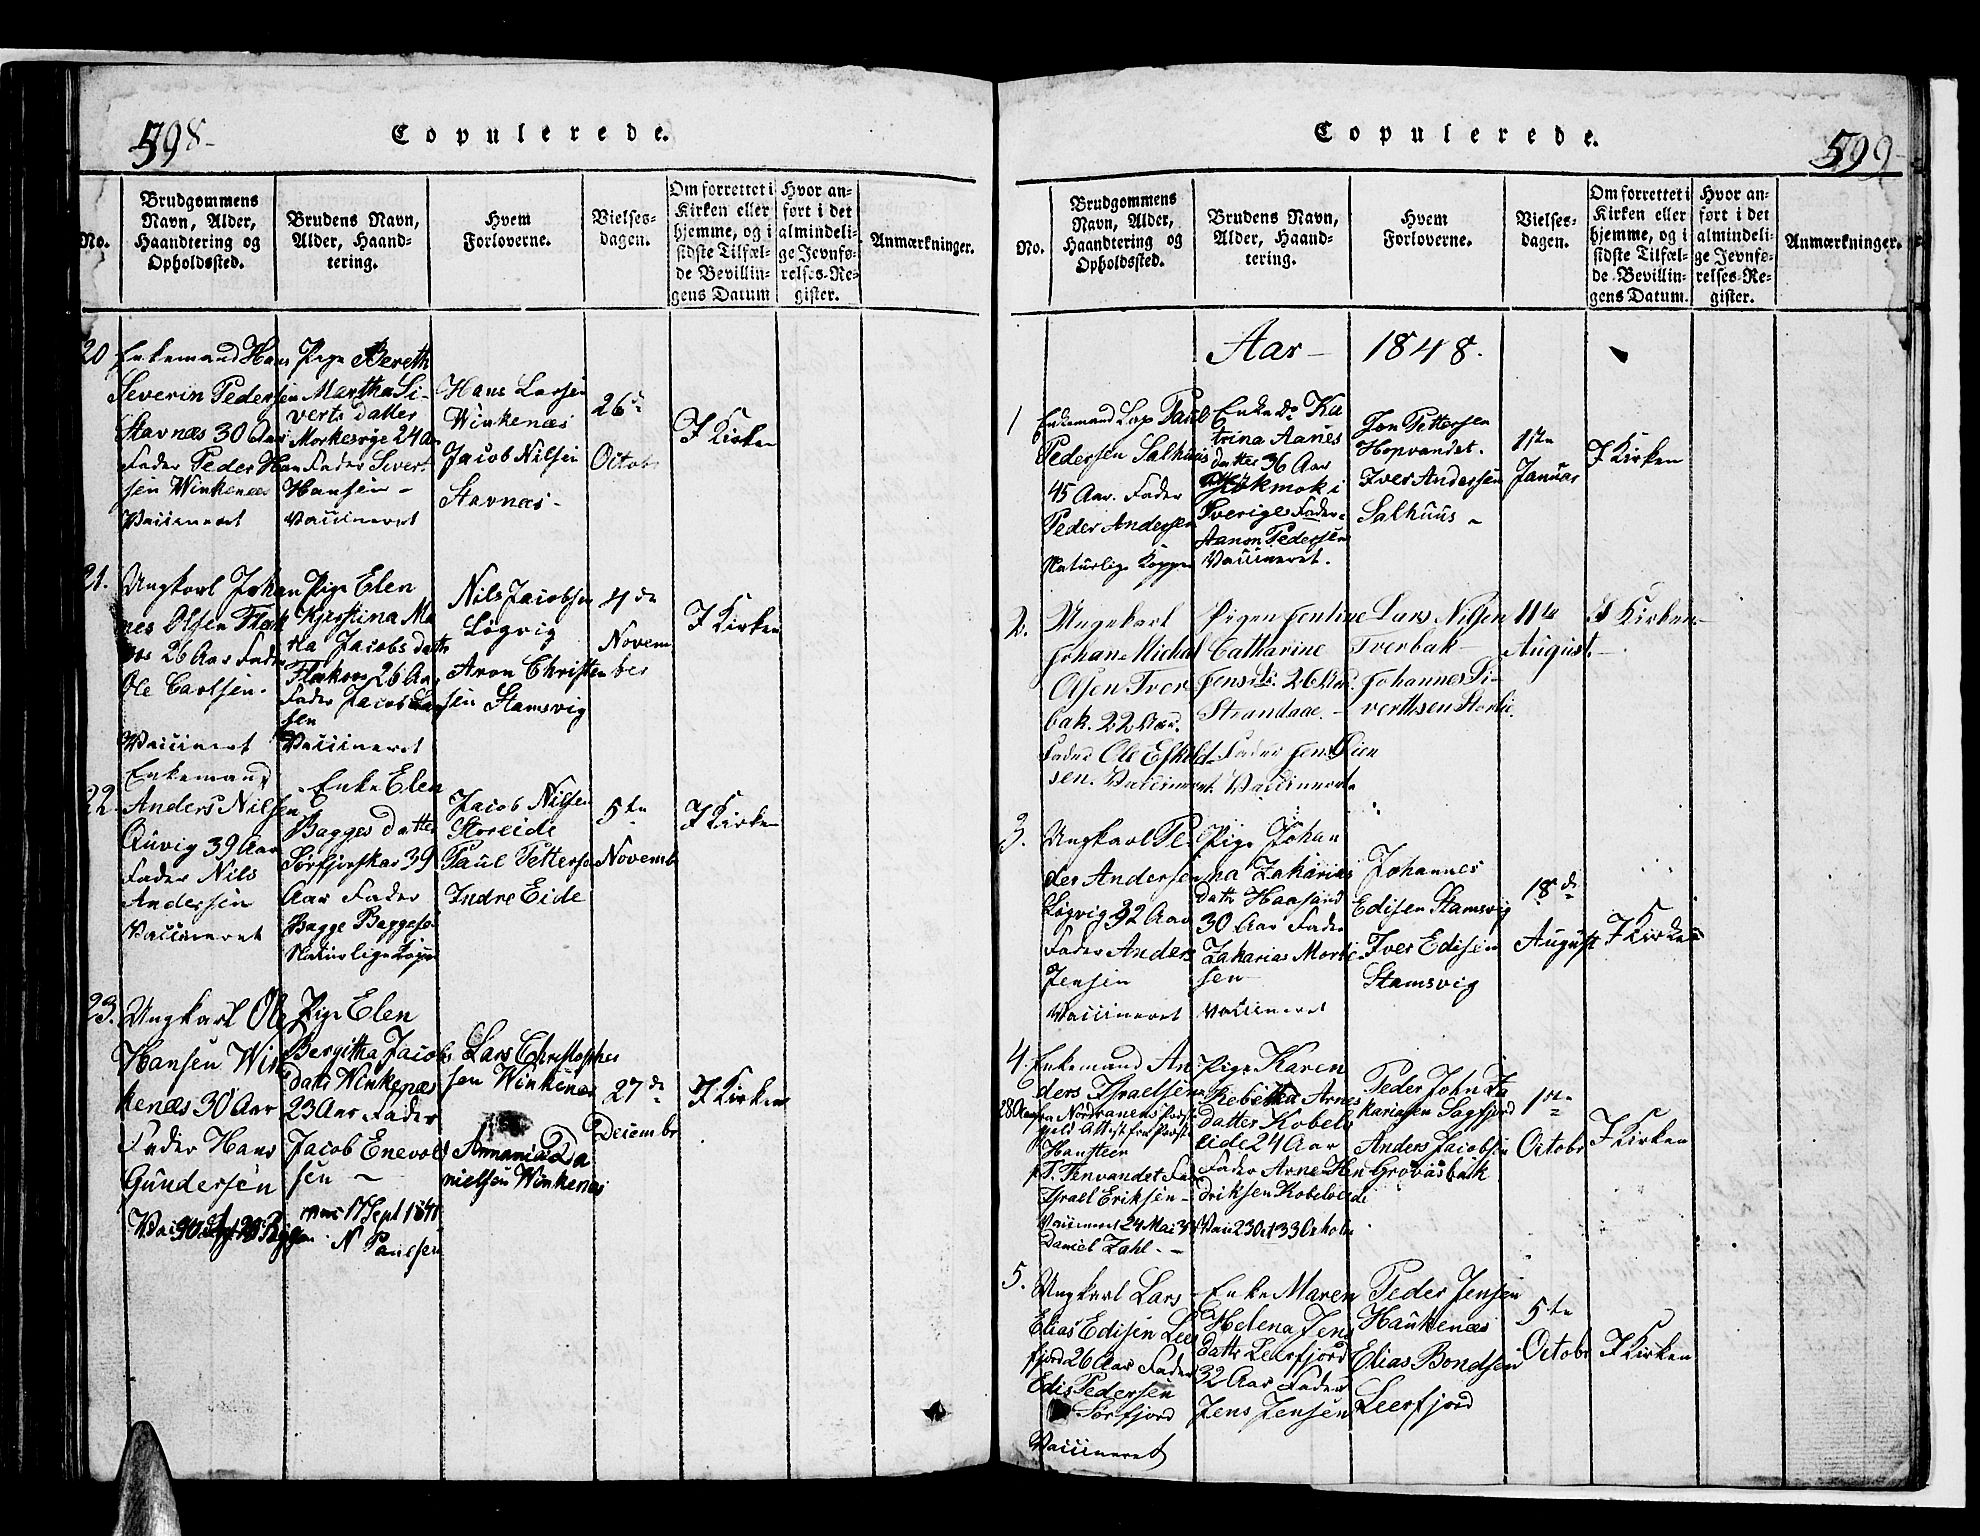 598-
Copulerede.
No.
Brudgommens
Navn, Alder,
Haandtering og
Opholdssted.
Brudens Navn,
Alder, Haand-
tering.
Hvem
Forloverne.
Vielses-
dagen.
Om forrettet i
Kirken eller
hjemme, og i
sidste Tilfæl-
de Bevillin-
gens Datum
Hvor an-
ført i det
almindeli-
ge Jevnfø-
relses-Re-
gister.
Anmærkninger.
20
Enkemand Hans
Severin Pedersen
Stavnæs 30 Aar
Fader Peder Han
sen Winkenæs
Vaccineret
Pige Bereth
Martha Si-
verts datter
Morkesvig 24 Aar
Fader Sivert
Hansen -
Vaccineret
Hans Larsen
Winkenæs
Jacob Nilsen
Stavnæs -
26de
Octobr
I Kirken
21.
Ungkarl Johan
nes Olsen Flak
26 Aar Fader
Ole Carlsen.
Vaccineret
Pige Elen
Kjerstina Ma
ria Jacobs datter
26 Aar
Fader Jacob Lar
sen
Vaccineret
Nils Jacobsen
Løgvig
Aron Christen
sen Stamsvig
4de
Novem
ber
I Kirken
22.
Enkemand
Anders Nilsen
39 Aar
Fader Nils
Andersen
Vaccineret
Enke Elen
Bagges datter
Sørfjorskar 39
Aar Fader
Bagge Baggesen
Naturlige Kopper
Jacob Nilsen
Storeide
Paul Pettersen
Indre Eide
5te
Novemb
I Kirken
23.
Ungkarl Ole
Hansen Win
kenæs 30 Aar
Fader Hans
Gundersen
Pige Elen
Bergitha Jacobs
datr Winkenæs
23 Aar Fader
Jacob Enevold
sen -
17 Sept 1841
N Paulsen
Lars Christopher
sen Winkenæs
Annanias Da
nielsen Winkenæs
27de
Decembr
I Kirken
599-
Copulerede.
No.
Brudgommens
Navn, Alder,
Haandtering og
Opholdssted.
Brudens Navn,
Alder, Haand-
tering.
Hvem
Forloverne.
Vielses-
dagen.
Om forrettet i
Kirken eller
hjemme, og i
sidste Tilfæl-
de Bevillin-
gens Datum.
Hvor an-
ført i det
almindeli-
ge Jevnfø-
relses-Re-
gister.
Anmærkninger.
Aar - 1848.
1
Enkemand Lap Paul
Pedersen Salhuus
45 Aar. Fader
Peder Andersen
Naturlige Kopper
Enke do Ka
trina Aanes
datter 36 Aar
Jokmok i
Sverige Fader
Aanon Pedersen
Vaccineret.
Jon Pettersen
Hopvandet.
Iver Andersen
Salhuus -
1ste
Januar
I Kirken
2.
Ungekarl
Johan Michal
Olsen Tver
bak. 22 Aar.
Fader Ole Eskild
sen. Vaccineret
Pigen Jentine
Catharine
Jensdr. 26 Aar.
Strandaae. -
Fader Jens Oien
Vaccinerte
Lars Nilsen
Tverbak -
Johannes Si-
vertsen Storli.
11te
August. -
I Kirken -
3.
Ungkarl Pe
der Andersen
Løgvig 32 Aar
Fader Anders
Jensen
Vaccineret
Pige Johan
na Zakarias
datter Haasand
30 Aar Fader
Zakarias Morte
sen
Vaccineret
Johannes
Edisen Stamsvig
Iver Edisen
Stamsvig
18de
August
I Kirken
4.
Enkemand An
ders Israelsen
28 Aar fra Nordranens Præste
geld Attest fra Præst
Hansteen
p. T. Tenvandet Fader
Israel Eriksen -
Vaccineret 24 Mai
Daniel Zahl. -
Pige Karen
Rebekka Arnes
datter Kobelv
eide 24 Aar
Fader Arne Hen
driksen Kobelveide
Peder John Za
kariasen Sagfjord
Anders Jacobsen
Grovasbak
1ste
Octobr
I Kirken
5.
Ungkarl Lars
Elias Edisen Leer
fjord 26 Aar Fader
Edis Pedersen
Sørfjord
Vaccineret
Enke Maren
Helena Jens
datter Leerfjord
32 Aar Fader
Jens Jensen
Peder Jensen
Haukenæs
Elias Bondsen
Leerfjord
5te
Octobr
I Kirken